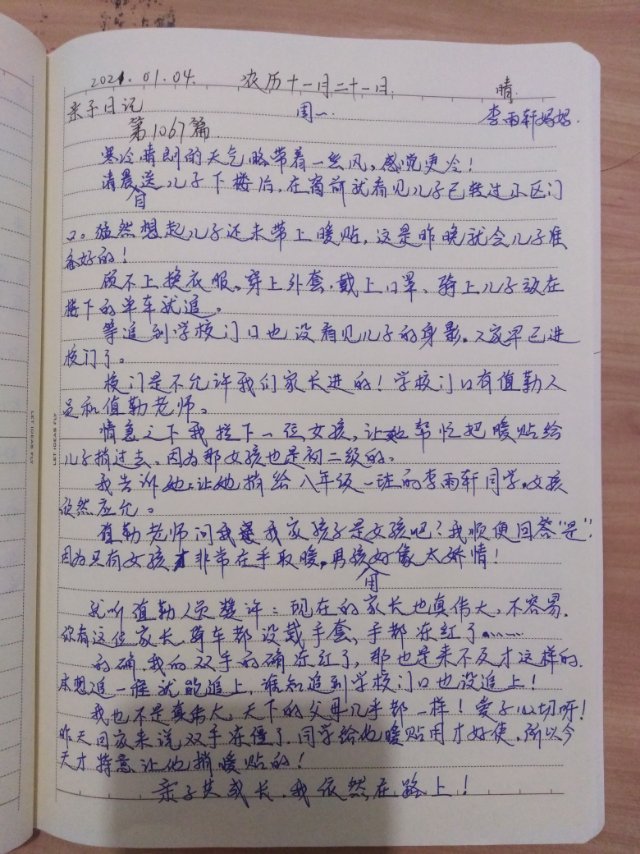 2021.01.04. 农历十一月二十一日 晴
亲子日记 周一. 李雨轩妈妈.
第1067篇
寒冷晴朗的天气略带着一丝风,感觉更冷!
清晨送儿子下楼后,在窗前就看见儿子已转过小区门
目
口。猛然想起儿子还未带上暖贴,这是昨晚就会儿子准
备好的!
顾不上换衣服。穿上外套.戴上口罩、骑上儿子放在
楼下的单车就追。
等追到学校门口也没看见儿子的身影。人家早已进
校门了。
校门是不允许我们家长进的!学校门口有值勤人
员和值勤老师。
情急之下我拦下一位女孩,让她帮忙把暖贴给
儿子捎过去。因为那女孩也是初二级的。
我告诉她:让她捎给八年级一班的李雨轩同学。女孩
欣然应允。
值勤老师问我是我家孩子是女孩吧?我顺便回答"是".
因为只有女孩才非常在乎取暖。男孩好像太矫情!
用
就听值勤人员赞许:现在的家长也真伟大,不容易.
你看这位家长.骑车都没戴手套、手都冻红了……
的确.我的双手的确冻红了,那也是来不及才这样的.
本想追一准就能追上,谁知追到学校门口也没追上!
我也不是真伟大,天下的父母几乎都一样!爱子心切呀!
昨天回家来说双手冻僵了.同学给他暖贴用才好使,所以今
天才特意让他捎暖贴的!
亲子共成长.我依然在路上!
LET IDEAS FLY